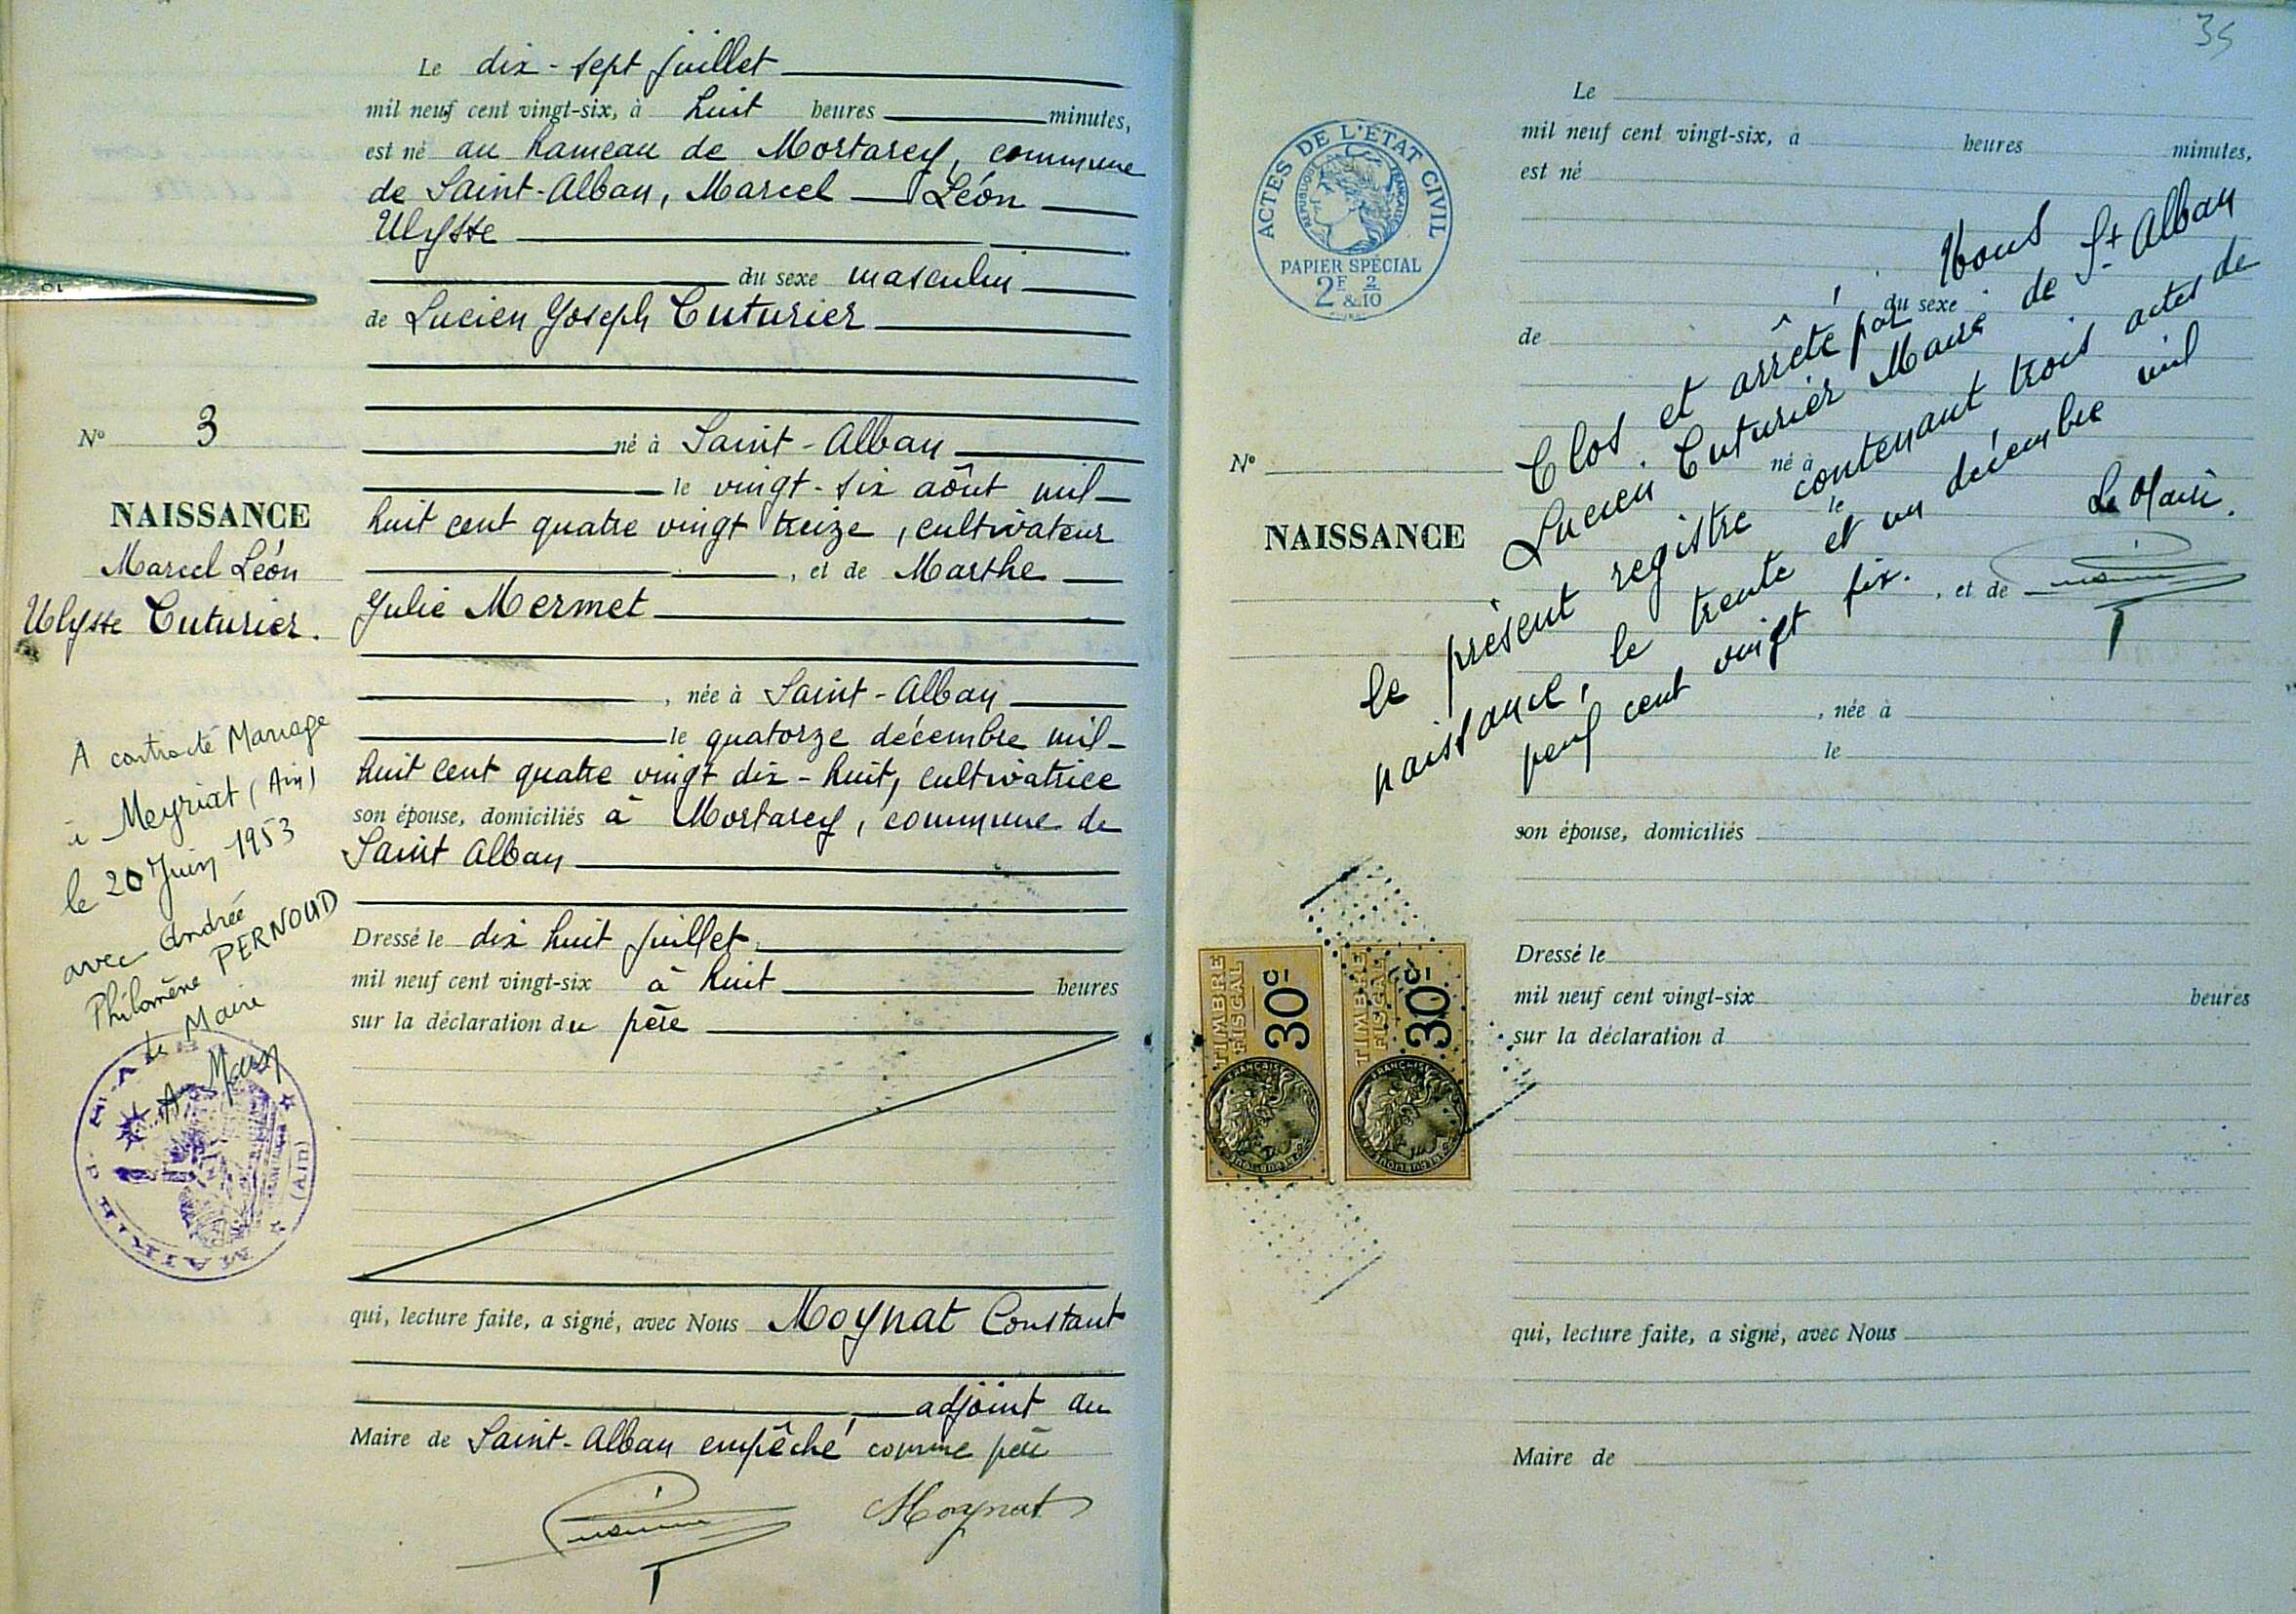 Le dix-sept juillet
mil neuf cent vingt-six, à huit heures minutes,
est né au hameau de Mortarey, commune
de Saint-Alban, Marcel Léon
Ulysse
du sexe masculin
de Lucien Joseph Cuturier
né à Saint-Alban
le vingt-six aôut mil-
huit cent quatre vingt treize, cultivateur
, et de Marthe
Julie Mermet
, née à Saint-Alban
le quatorze décembre mil-
huit cent quatre vingt dix-huit, cultivatrice
son épouse, domiciliés à Mortarey, commune de
Saint Alban
Dressé le dix huit juillet
mil neuf cent vingt-six à huit heures
sur la déclaration du père
qui, lecture faite, a signé, avec Nous Moynat Constant
adjoint au
Maire de Saint-Alban empêché comme père
Moynat
Nº 3
NAISSANCE
Marcel Léon
Ulysse Cuturier.
A contracté Mariage
à Meyriat (Ain)
le 20 Juin 1953
avec Andrée
Philomène PERNOUD
Le Maire
MAIRIE
(Ain)
35
ACTES DE L'ÉTAT CIVIL
RÉPUBLIQUE FRANÇAISE
PAPIER SPÉCIAL
2F 2
& 10
Le
mil neuf cent vingt-six, à heures minutes,
est né
du sexe
de
Nº
NAISSANCE
né à
le
, et de
, née à
le
son épouse, domiciliés
Dressé le
mil neuf cent vingt-six heures
sur la déclaration d
qui, lecture faite, a signé, avec Nous
Maire de
Clos et arrêté par Nous
Lucien Cuturier Maire de St Alban
le présent registre contenant trois actes de
naissance, le trente et un décembre mil
neuf cent vingt six.
Le Maire.
TIMBRE
FISCAL
30c
TIMBRE
FISCAL
30c